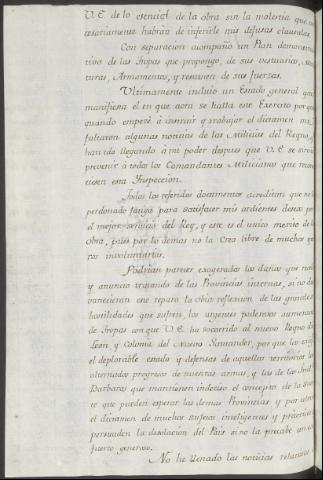 V.E. de lo esencial de la obra sin la molestia que ne
cesariamente habrán de inferirle mis difusas clausulas.
Con separacion acompaño un Plan demonstra
tivo de las Tropas que propongo, de sus vestuarios, Mon
turas, Armamentos, y resumen de sus fuerzas.
Ultimamente incluio un Estado general que
manifiesta el en que aora se halla este Exercito porque
quando empezé á instruir y trabajar el dictamen me
faltaron algunas noticias de las Milicias del Reyno, y
han ido llegando á mi poder despues que V.E. se sirvió
prevenir á todos los Comandantes Milicianos que recono
ciesen esta Inspeccion.
Todos los referidos documentos acreditan que no he
perdonado fatiga para satisfacer mis ardientes deseos por
el mejor servicio del Rey, y este es el unico merito de la
obra, pues por lo demas no la creo libre de muchos yer
ros involuntarios.
Podrian parecer exagerados los daños que
y anuncio tratando de las Provincias internas, si no des
vanecieran ese reparo la obia reflexion de las grandes
hostilidades que sufren, los urgentes poderosos aumentos
de Tropas con que V.E. ha socorrido al nuevo Reyno de
Leon y Colonia del Nuevo Santander, por que las exige
el deplorable estado y defensas de aquellos territorios, los
alternados progresos de nuestras armas, y las de los Indios
Barbaros que mantienen indeciso el concepto de la suer
te que pueden esperar las demas Provincias y por ultimo
el dictamen de muchos sujetos inteligentes y practicos
persuaden la desolacion del Pais si no la precabe un es
fuerzo generoso.
No he llenado las noticias